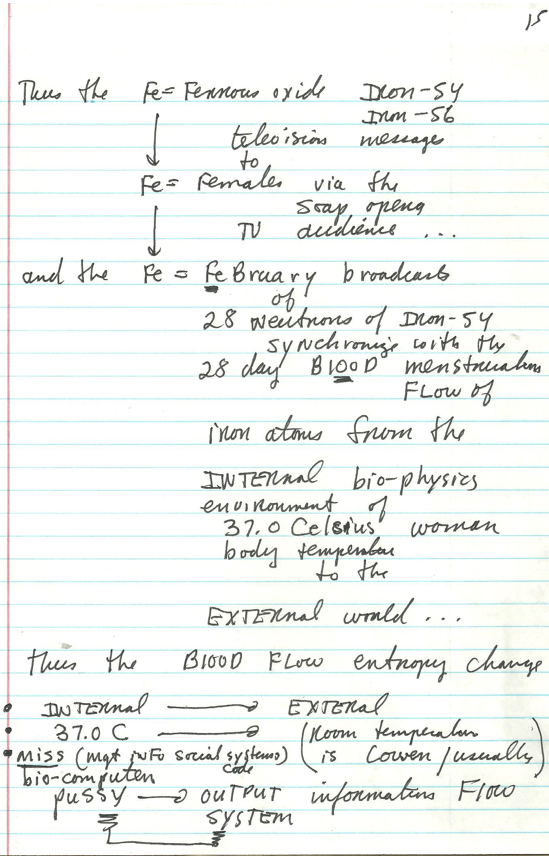 15
Thus the Fe = Ferrous oxide Iron-54
Iron-56
television messages
to
Fe = Females via the
soap opera
TV audience ...
and the Fe = FeBruary broadcasts
of
28 neutrons of Iron-54
synchronize with the
28 day B100D menstruation
FLOW of
iron atoms from the
INTERNAL bio-physics
environment of
37.0 Celsius woman
body temperature
to the
EXTERNAL world ...
thus the B100D FLOW entropy change
• INTERNAL → EXTERNAL
• 37.0 C → (Room temperature
is lower/usually)
• MISS (mgt info social systems)
code
bio-computer
pussy → OUTPUT information FLOW
SYSTEM